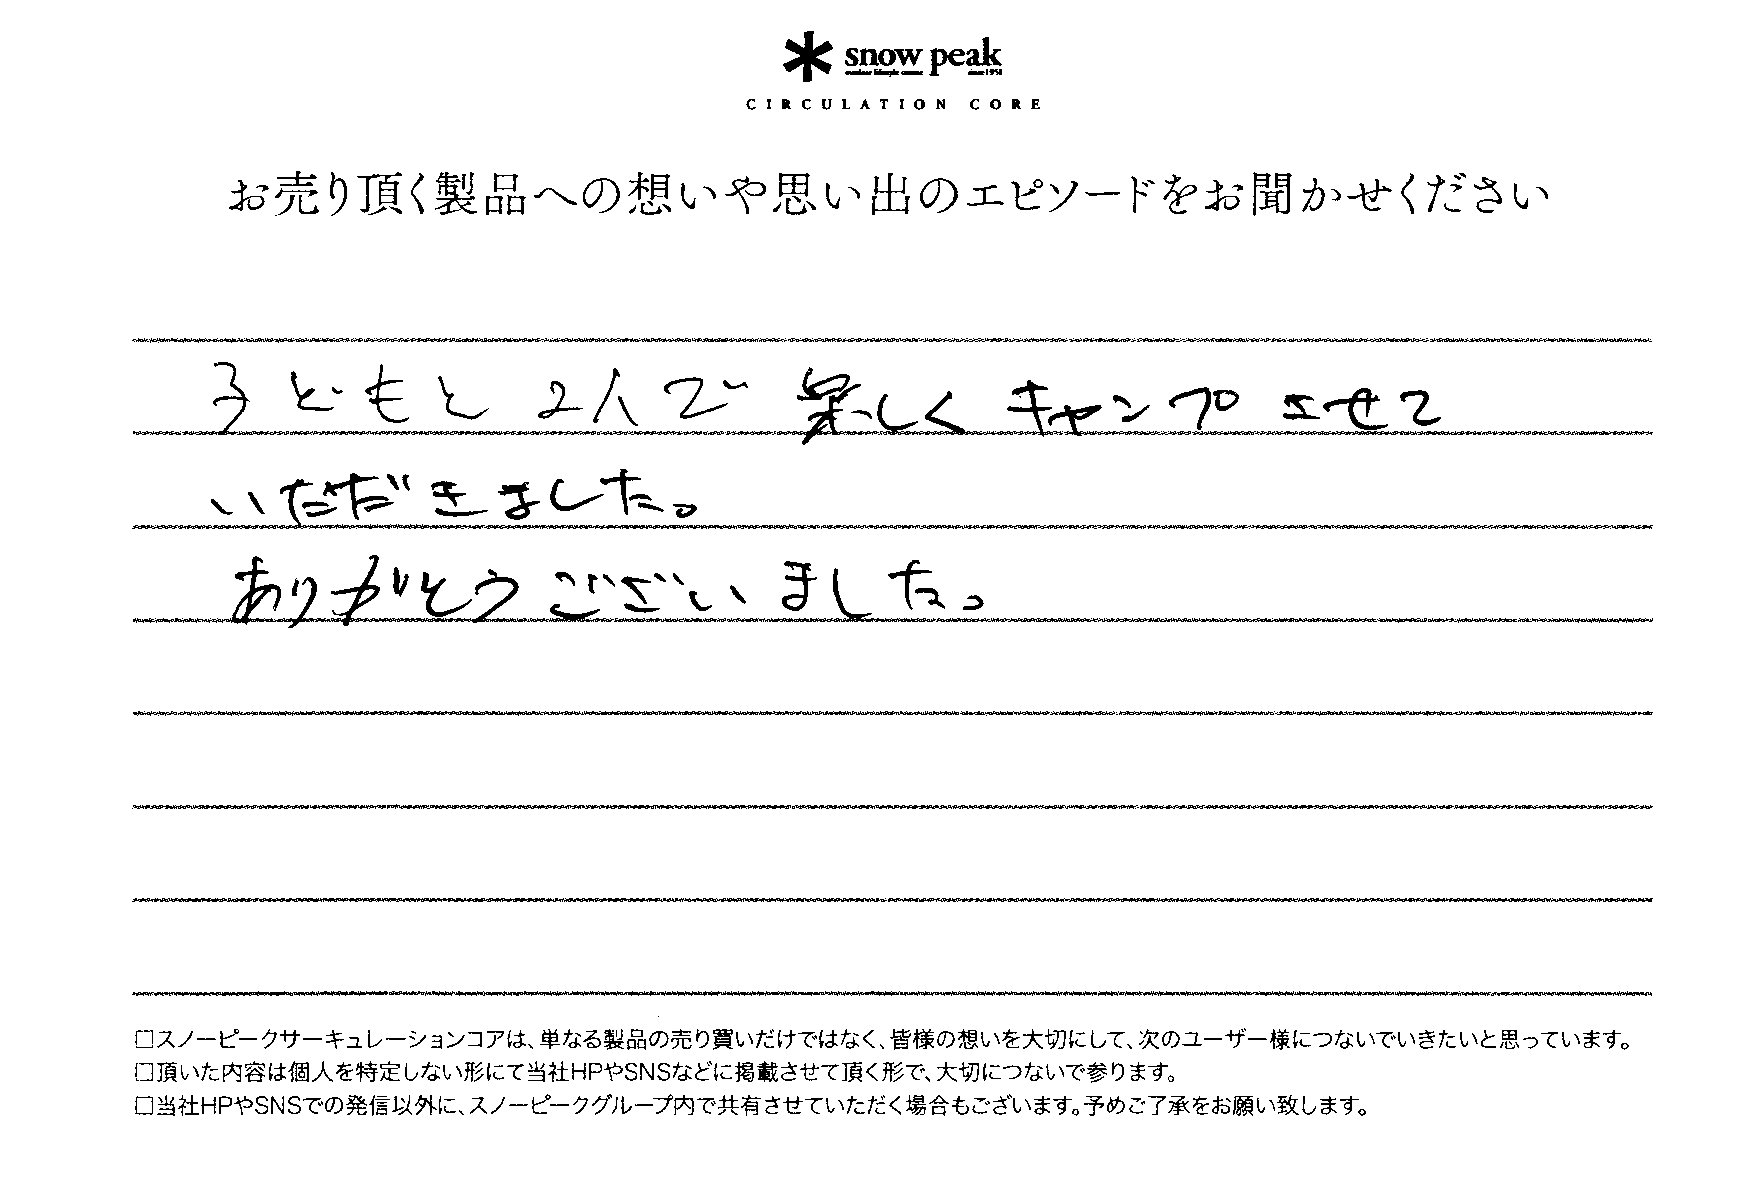 snow peak
outdoor lifestyle creator since 1958
CIRCULATION CORE
お売り頂く製品への想いや思い出のエピソードをお聞かせください
子どもと2人で楽しくキャンプさせて
いただきました。
ありがとうございました。
□スノーピークサーキュレーションコアは、単なる製品の売り買いだけではなく、皆様の想いを大切にして、次のユーザー様につないでいきたいと思っています。
□頂いた内容は個人を特定しない形にて当社HPやSNSなどに掲載させて頂く形で、大切につないで参ります。
□当社HPやSNSでの発信以外に、スノーピークグループ内で共有させていただく場合もございます。予めご了承をお願い致します。